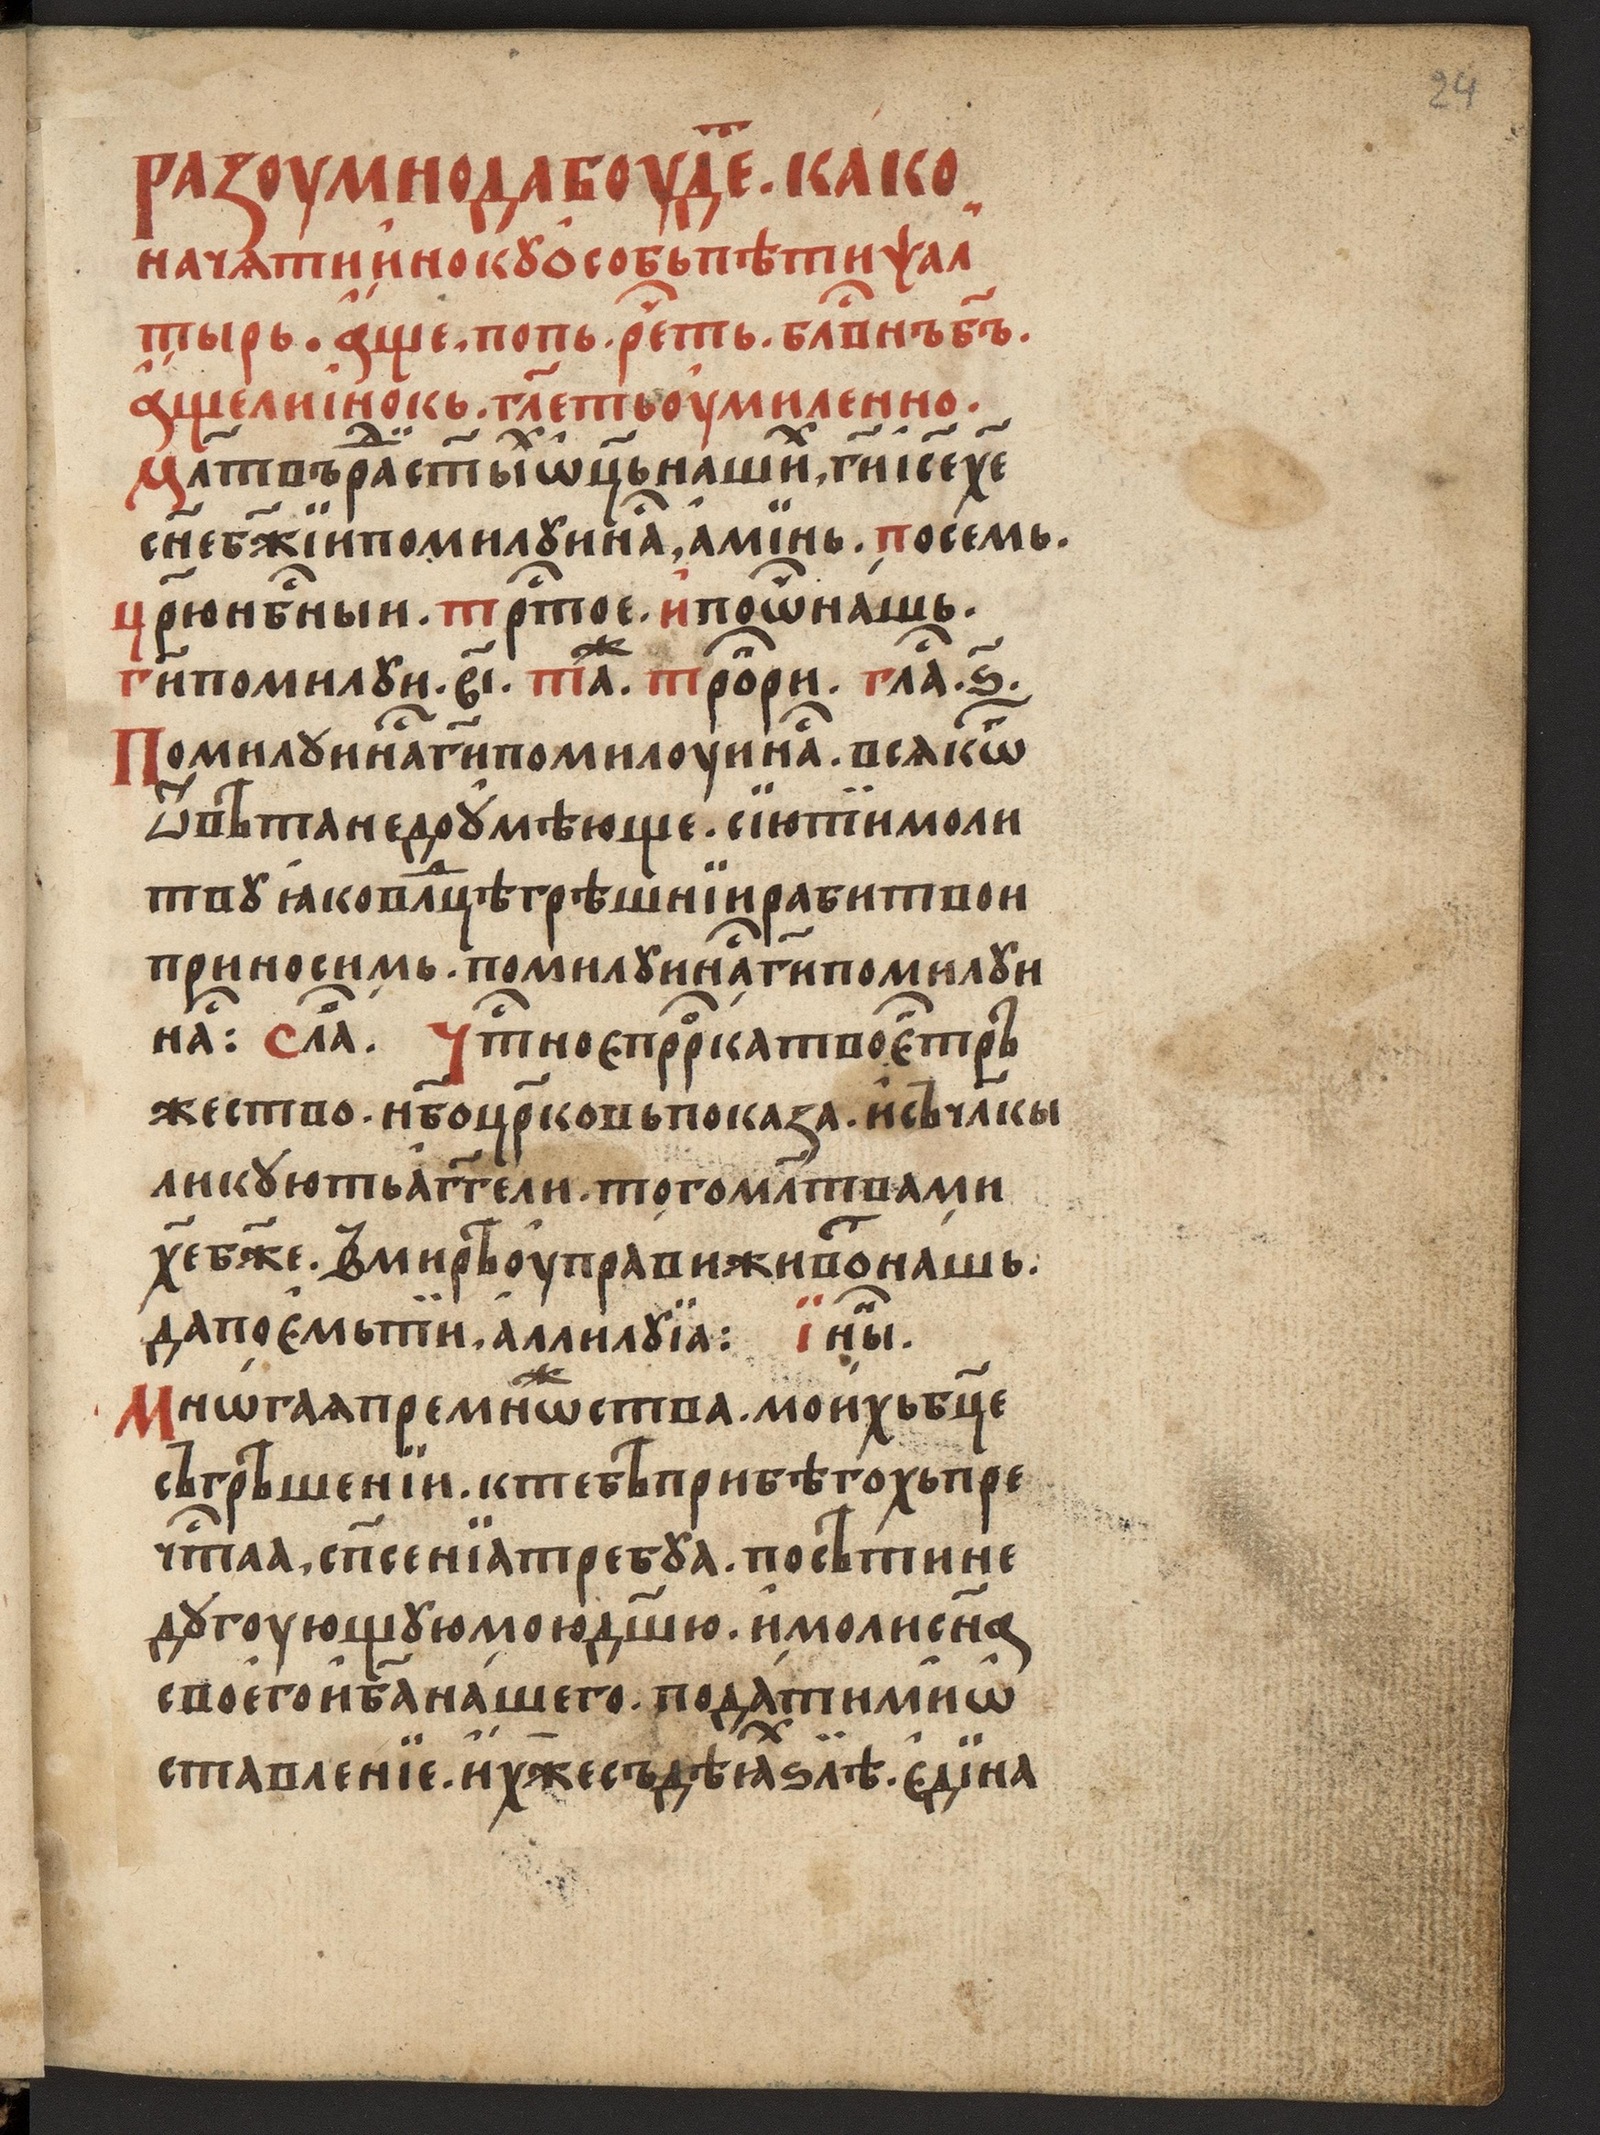 24
разоумнодабоуд҇е. како
начѧтиинокꙋособьпѣтиѱал
тырь. аще. попь. рⷭ҇еть. блⷭ҇внъбъ҃.
ащелиінокь. гл҃етьоумиленно.
Мл҃твъраⷣст҃ыⷯиѡц҃ьнашиⷯ, ги҃ісе҃хе҃
сн҃ебж҃їипомилꙋинаⷭ҇, амїнь. посемь.
цр҃юнбⷭ҇ныи. трⷭ҇тое. ипоѡⷮ҇нашь.
ги҃помилꙋи. в҃і. таⷤ. трⷪ҇ри. глаⷭ҇. ѕ҃.
Помилꙋинаⷭ҇ги҃помилоуинаⷭ҇. всякѡⷭ҇
ѿвѣтанедоꙋмѣюще. сїютїимоли
твꙋіаковлⷣцѣгрѣшнїирабитвои
приносимь. помилꙋинаⷭ҇ги҃помилꙋи
наⷭ҇: слаⷭ҇. Чтⷭ҇ноєпррⷪ҇катвоеⷭ҇трь
жество. нб҃оцр҃ковьпоказа. исъчл҃кы
ликꙋютьагг҃ели. тогомл҃твами
хе҃бж҃е. вмирьоуправиживоⷮ҇нашь.
дапоємьтїи, аллилꙋїа: їнⷩ҇ы.
Мнѡгаѧпремнѡⷤства. моихьбц҃е
съгрѣшенїи. ктебѣприбѣгохьпре
чтⷭ҇аа, сп҃сенїатребꙋа. посѣтине
дꙋгоующꙋюмоюдш҃ю. имолисн҃а
своегоиб҃анашего. податимиѡ
ставленїе. ихж҃есъдѣꙗⷯѕлѣ. єдїна